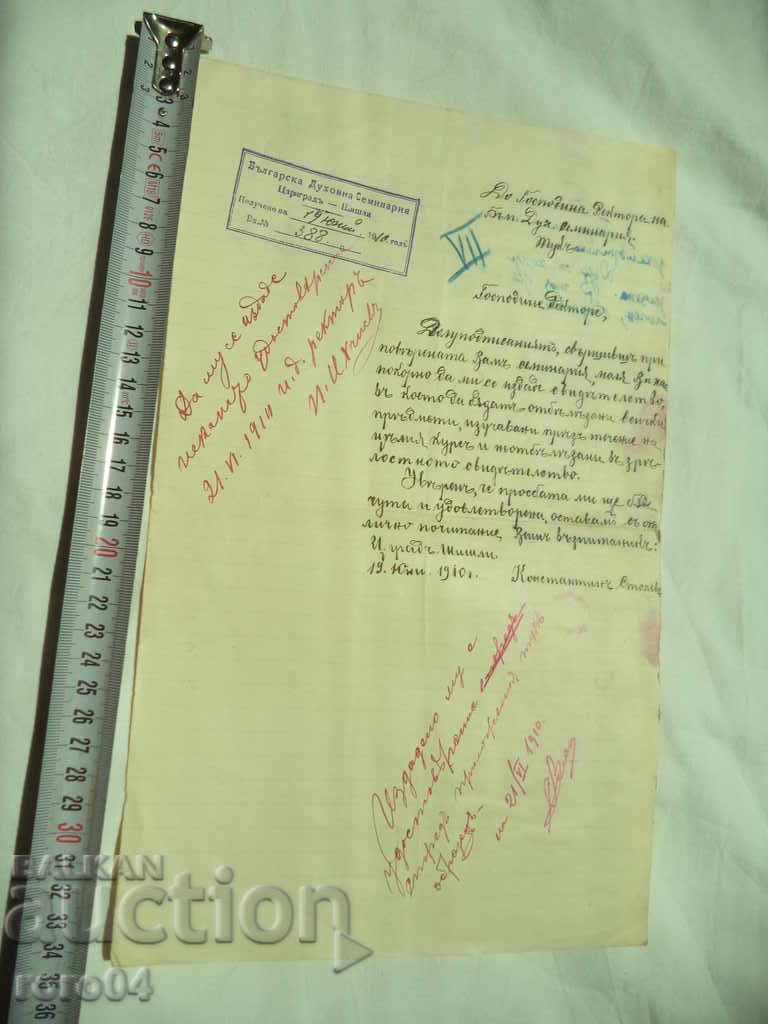 Българска Духовна Семинария
Цариградъ — Шишли
Получено на 19 юний 1910 год.
Вх. № 388
До Господина Ректора на
Бъл. Дух. семинария
Тукъ
VII
Господине Ректоре,
Долуподписаниятъ, свършивши при
повѣрената Вамъ семинария, моля Ви най
покорно да ми се издаде свидѣтелство,
въ което да бѫдатъ отбѣлѣзани всички
прѣдмети, изучавани прѣзъ течение на
цѣлия курсъ и неотбѣлѣзани въ зрѣ-
лостното свидѣтелство.
Увѣренъ, че просбата ми ще бѫде
чута и удовлетворена, оставамъ съ от
лично почитание Вашъ възпитаникъ:
Ц. градъ Шишли
19 Юни. 1910 г.
Константинъ Стоевъ
Да му се издаде
исканото удостовѣрение
21. VI. 1910 и. д. ректоръ
Издадено му е
удостовѣрение
споредъ приложения тукъ
образецъ
на 21/VI 1910.
BALKAN
auction
roro04
3 4 5 6 7 8 9 10 11 12 13 14 15 16 17 18 19 20 21 22 23 24 25 26 27 28 29 30 31 32 33 34 35 36